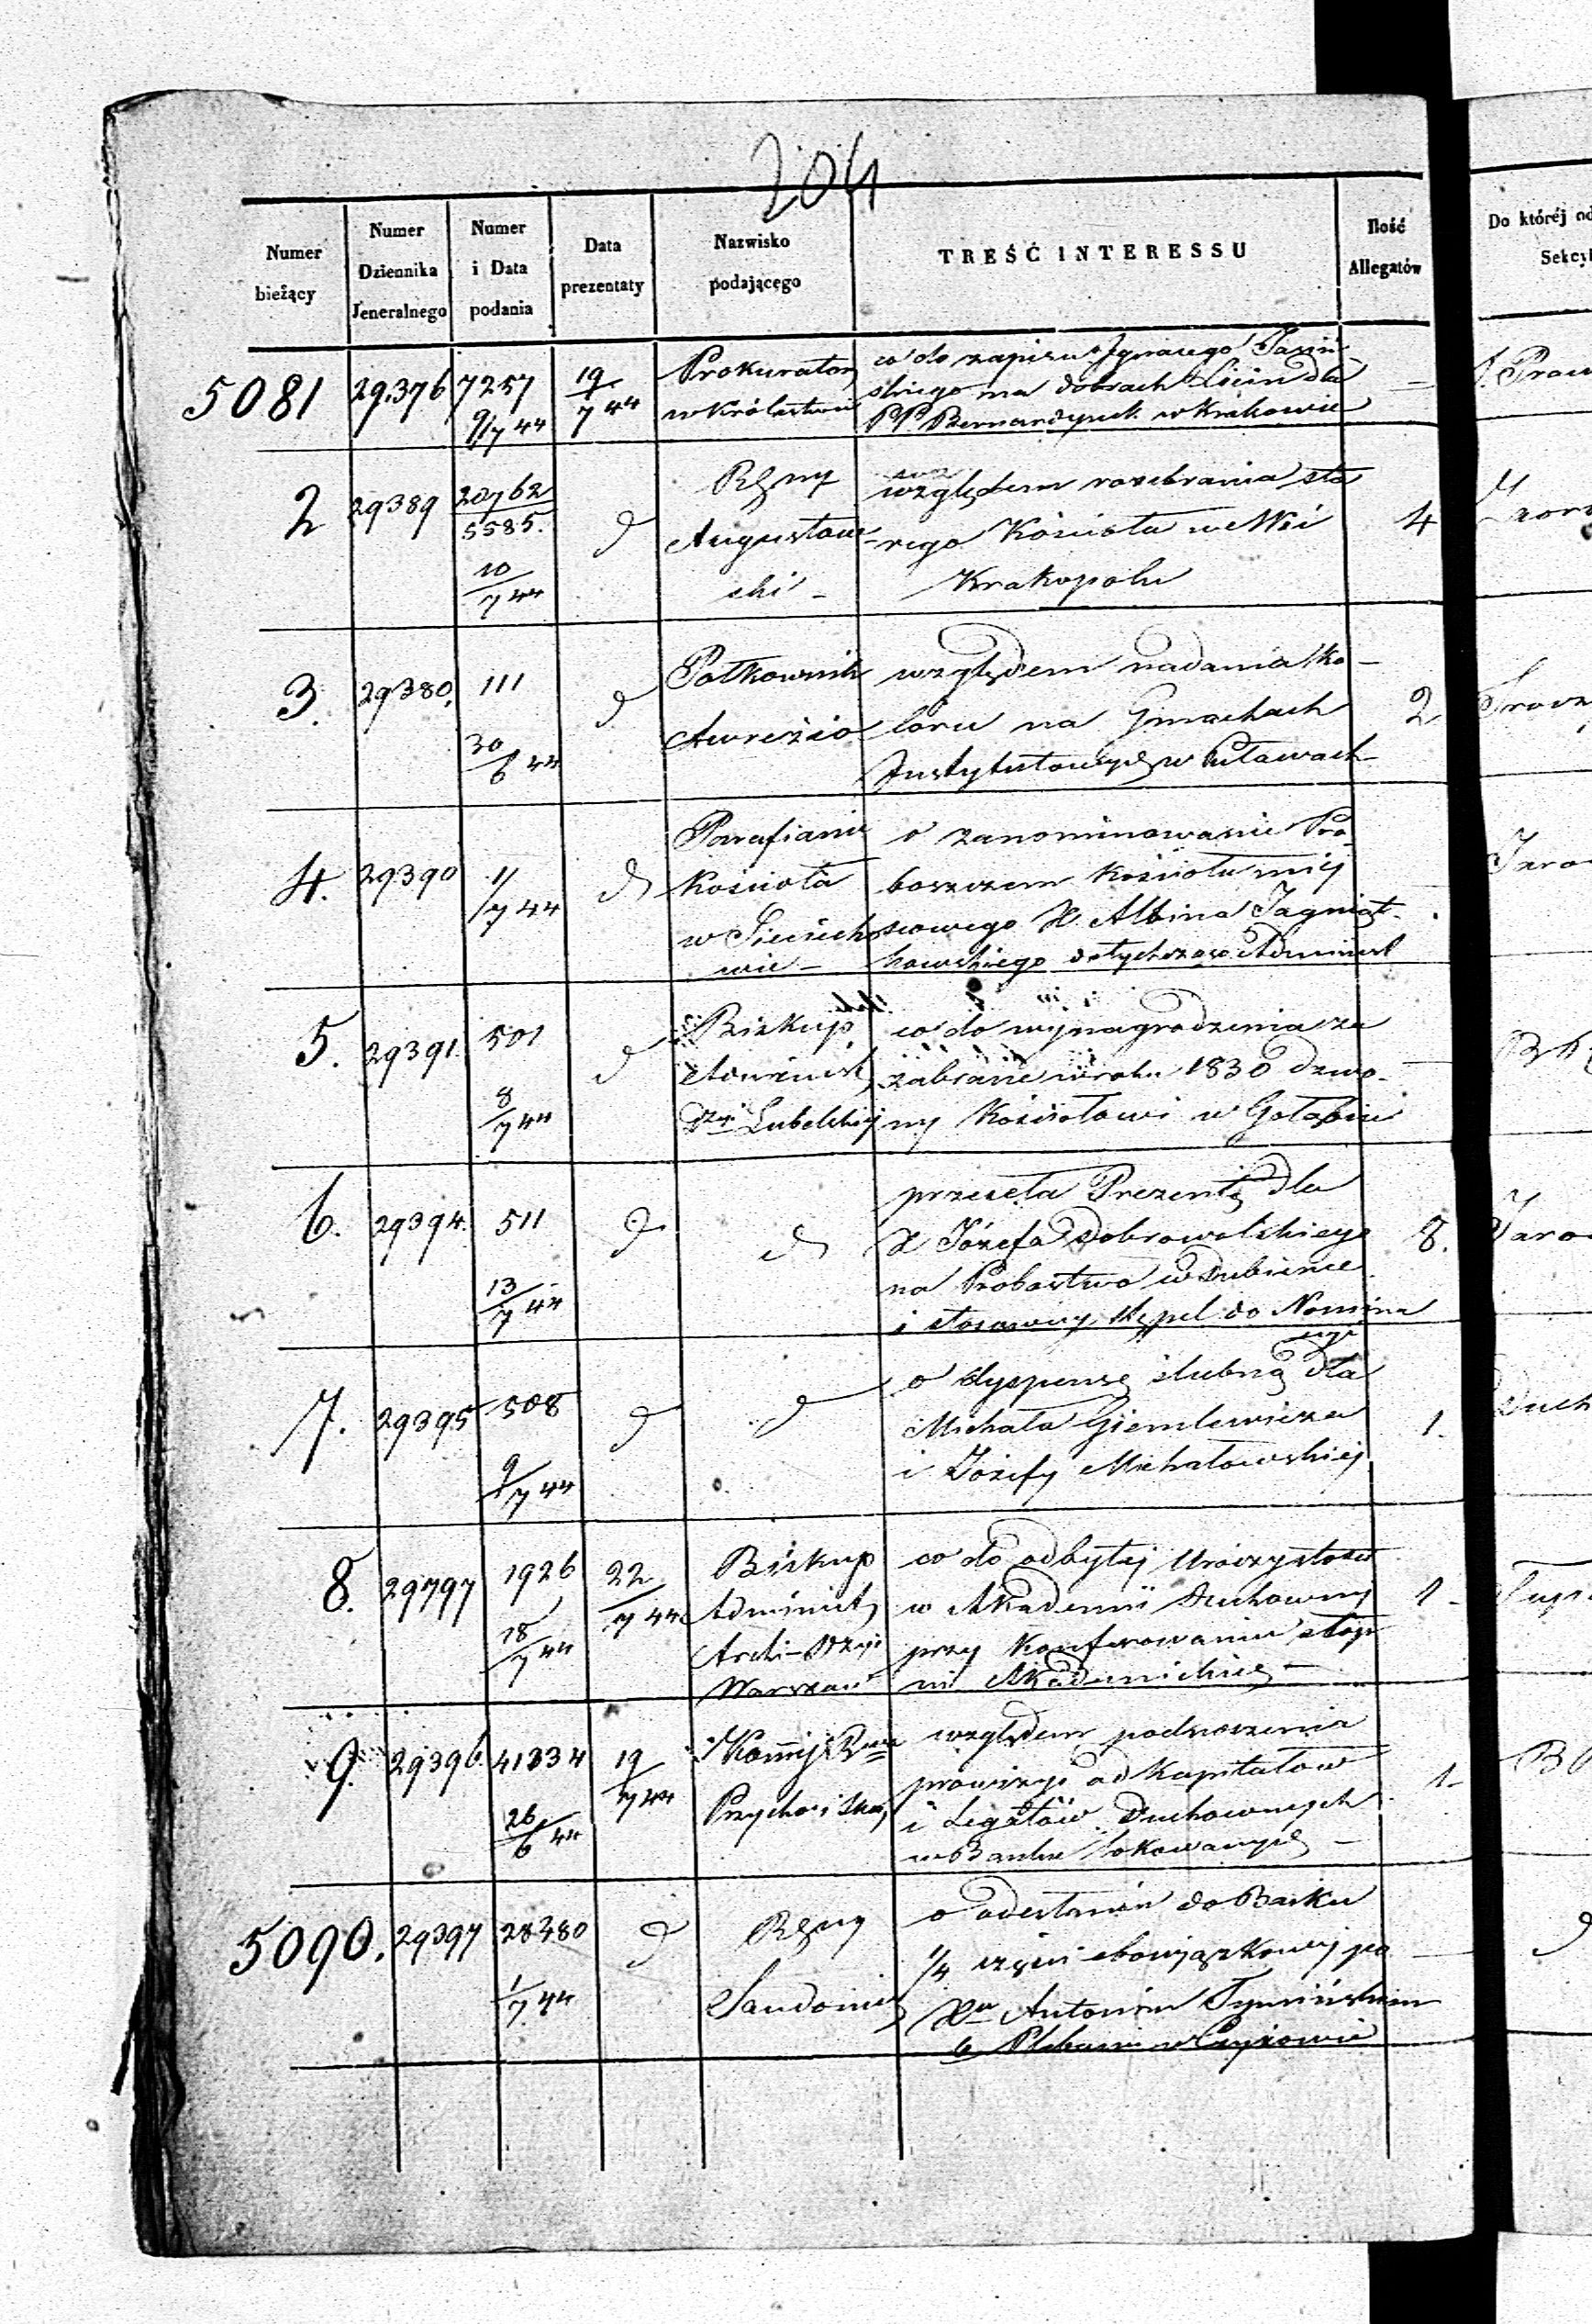 204
Numer bieżący
Numer Dziennika Jeneralnego
Numer i Data podania
Data prezentaty
Nazwisko podającego
TREŚĆ INTERESSU
Ilość Allegatów
Do której od
Sekcyi
5081 29376 7257 9/7 44 19/7 44
Prokurator
w Królestwie
co do zapisu Ignacego Jasiń
skiego na dobrach dla
PP. Bernardynek w Krakowie
–
2 29389 20762
5585.
10/7 44
d
Rząd
Augustow
ski –
względem rozebrania sta
rego Kościoła we Wsi
Krakopolu
4
3. 29380. 111
30/6 44
d
Połkownik
względem nadania ko–
loru na Gmachach
Instytutowych w Puławach
2
4. 29390 11/7 44
d
Parafianie
Kościoła
w Sieciecho
wie –
o zanominowanie Pro
boszczem Kościoła miej
scowego X Albina Jagniąt–
kowskiego dotychczas Administ
5. 29391. 501
8/7 44
d
Biskup
Dyi Lubelskiej
co do wynagrodzenia za
zabrane w roku 1830 dzwo–
ny Kościołowi w Gołąbiu
–
6. 29394. 511
13/7 44
d
d
przesyła Prezentę dla
X Józefa Dobrowolskiego
na Probostwo w Dubience
i stosowny stępel do Nomina
cyi
8.
7. 29395 508
9/7 44
d
d
o dyspensę ślubną dla
Michała Giemlewicza
i Józefy Michałowskiej
1.
8. 29797 1926
18/7 44
22/7 44
Biskup
Administ
Archi–Dyi
Warszaw
co do odbytej Uroczystości
w Akademii Duchowny
przy Konferowaniu stop
ni Akademickich –
1–
9. 29396. 41334
26/6 44
19/7 44
Komis Rząd
Przych. i Skar
względem podnoszenia
prowizyi od Kapitałów
i Legatów Duchownych
w Banku lokowanych –
1–
5090. 29397 28380
1/7 44
d
Rząd
Sandomir
o odesłanie do Banku
1/4 części obowiązkowej po
Xu Antonim Tymińskim
–
d